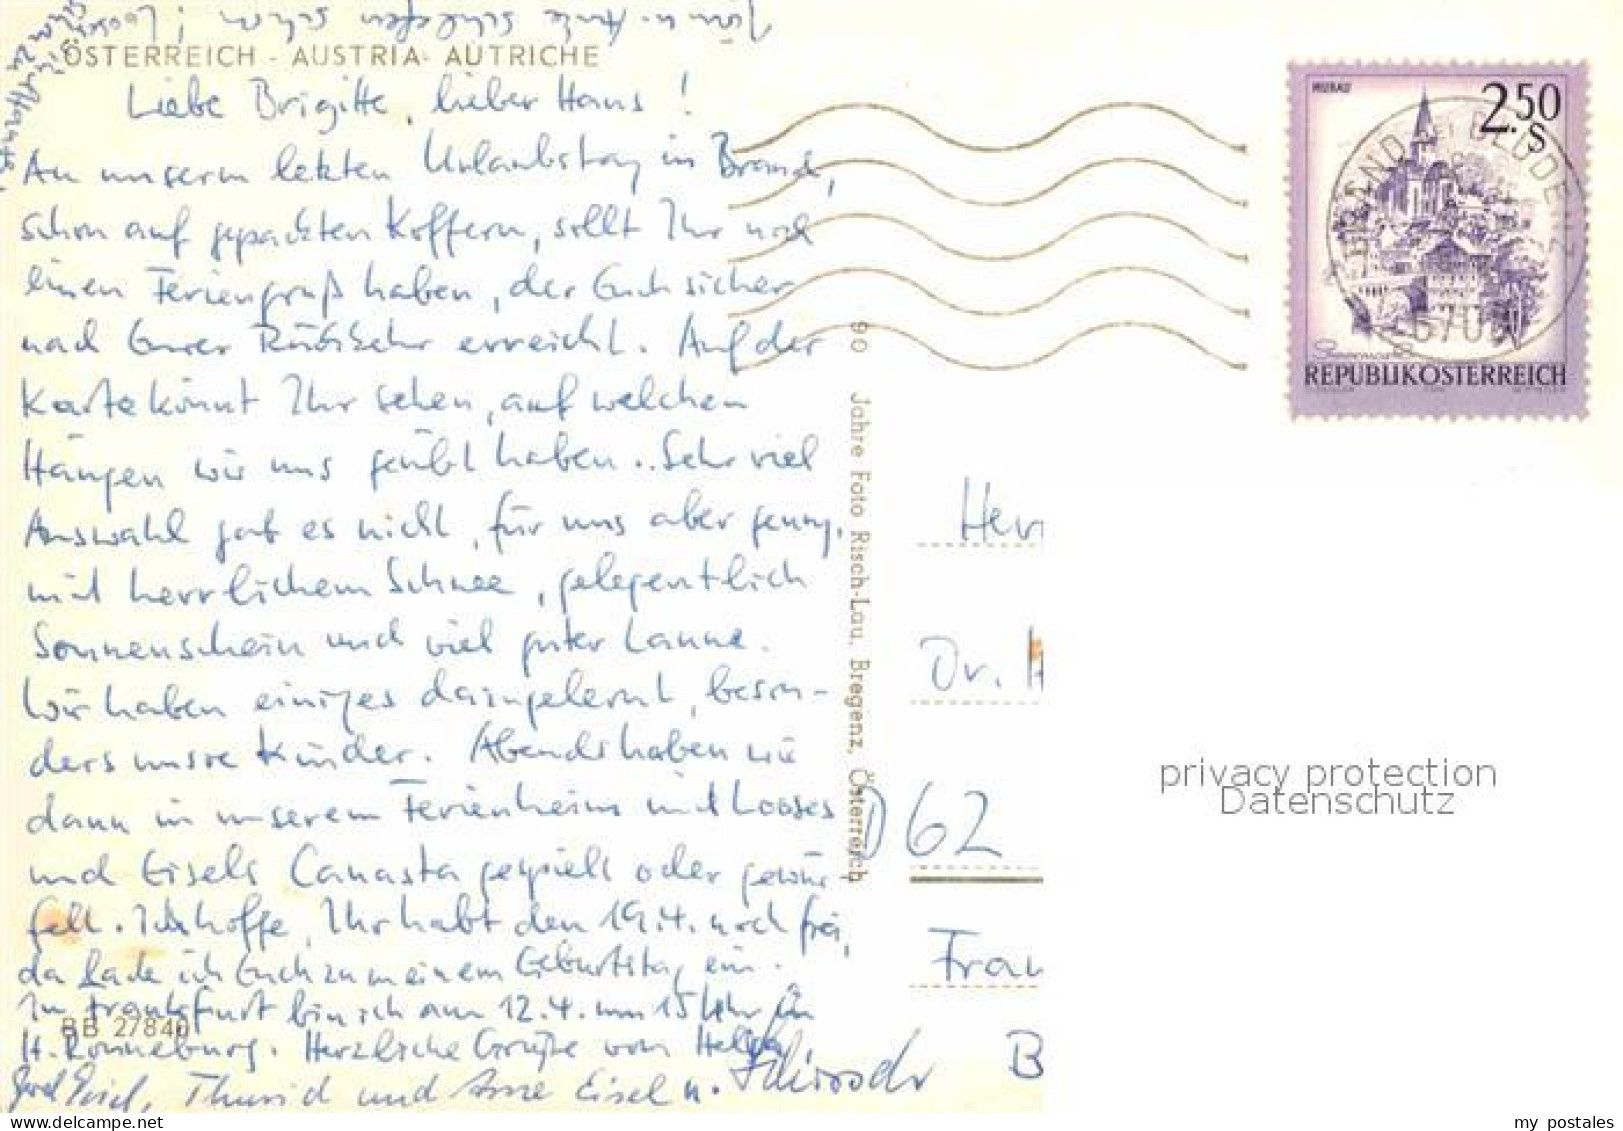 ÖSTERREICH - AUSTRIA - AUTRICHE
Liebe Brigitte, lieber Hans!
An unserem letzten Urlaubstag in Brand,
schon auf gepackten Koffern, sollt Ihr noch
einen Feriengruß haben, der Euch sicher
nach Eurer Rückkehr erreicht. Auf der
Karte könnt Ihr sehen, auf welchen
Hängen wir uns geübt haben. Sehr viel
Auswahl gab es nicht, für uns aber genug,
mit herrlichem Schnee, gelegentlich
Sonnenschein und viel guter Laune.
Wir haben einiges dazugelernt, beson-
ders unsre Kinder. Abends haben wir
dann in unserem Ferienheim mit Looses
und Eisels Canasta gespielt oder gewür-
felt. Ich hoffe, Ihr habt den 19.4. noch frei,
da lade ich Euch zu meinem Geburtstag ein.
In Frankfurt bin ich am 12.4. um 15 Uhr in
H. Ronneburg. Herzliche Grüße von Helga
Eisel, Thurid und Arne Eisel u.
schliefen schon!
90 Jahre Foto Risch-Lau, Bregenz, Österreich
BB 27840
MURAU
2.50
S
REPUBLIK ÖSTERREICH
BRAND BEI BLUDENZ
6708
Herr
Dr. H
D 62
Fran
B
privacy protection
Datenschutz
my postales